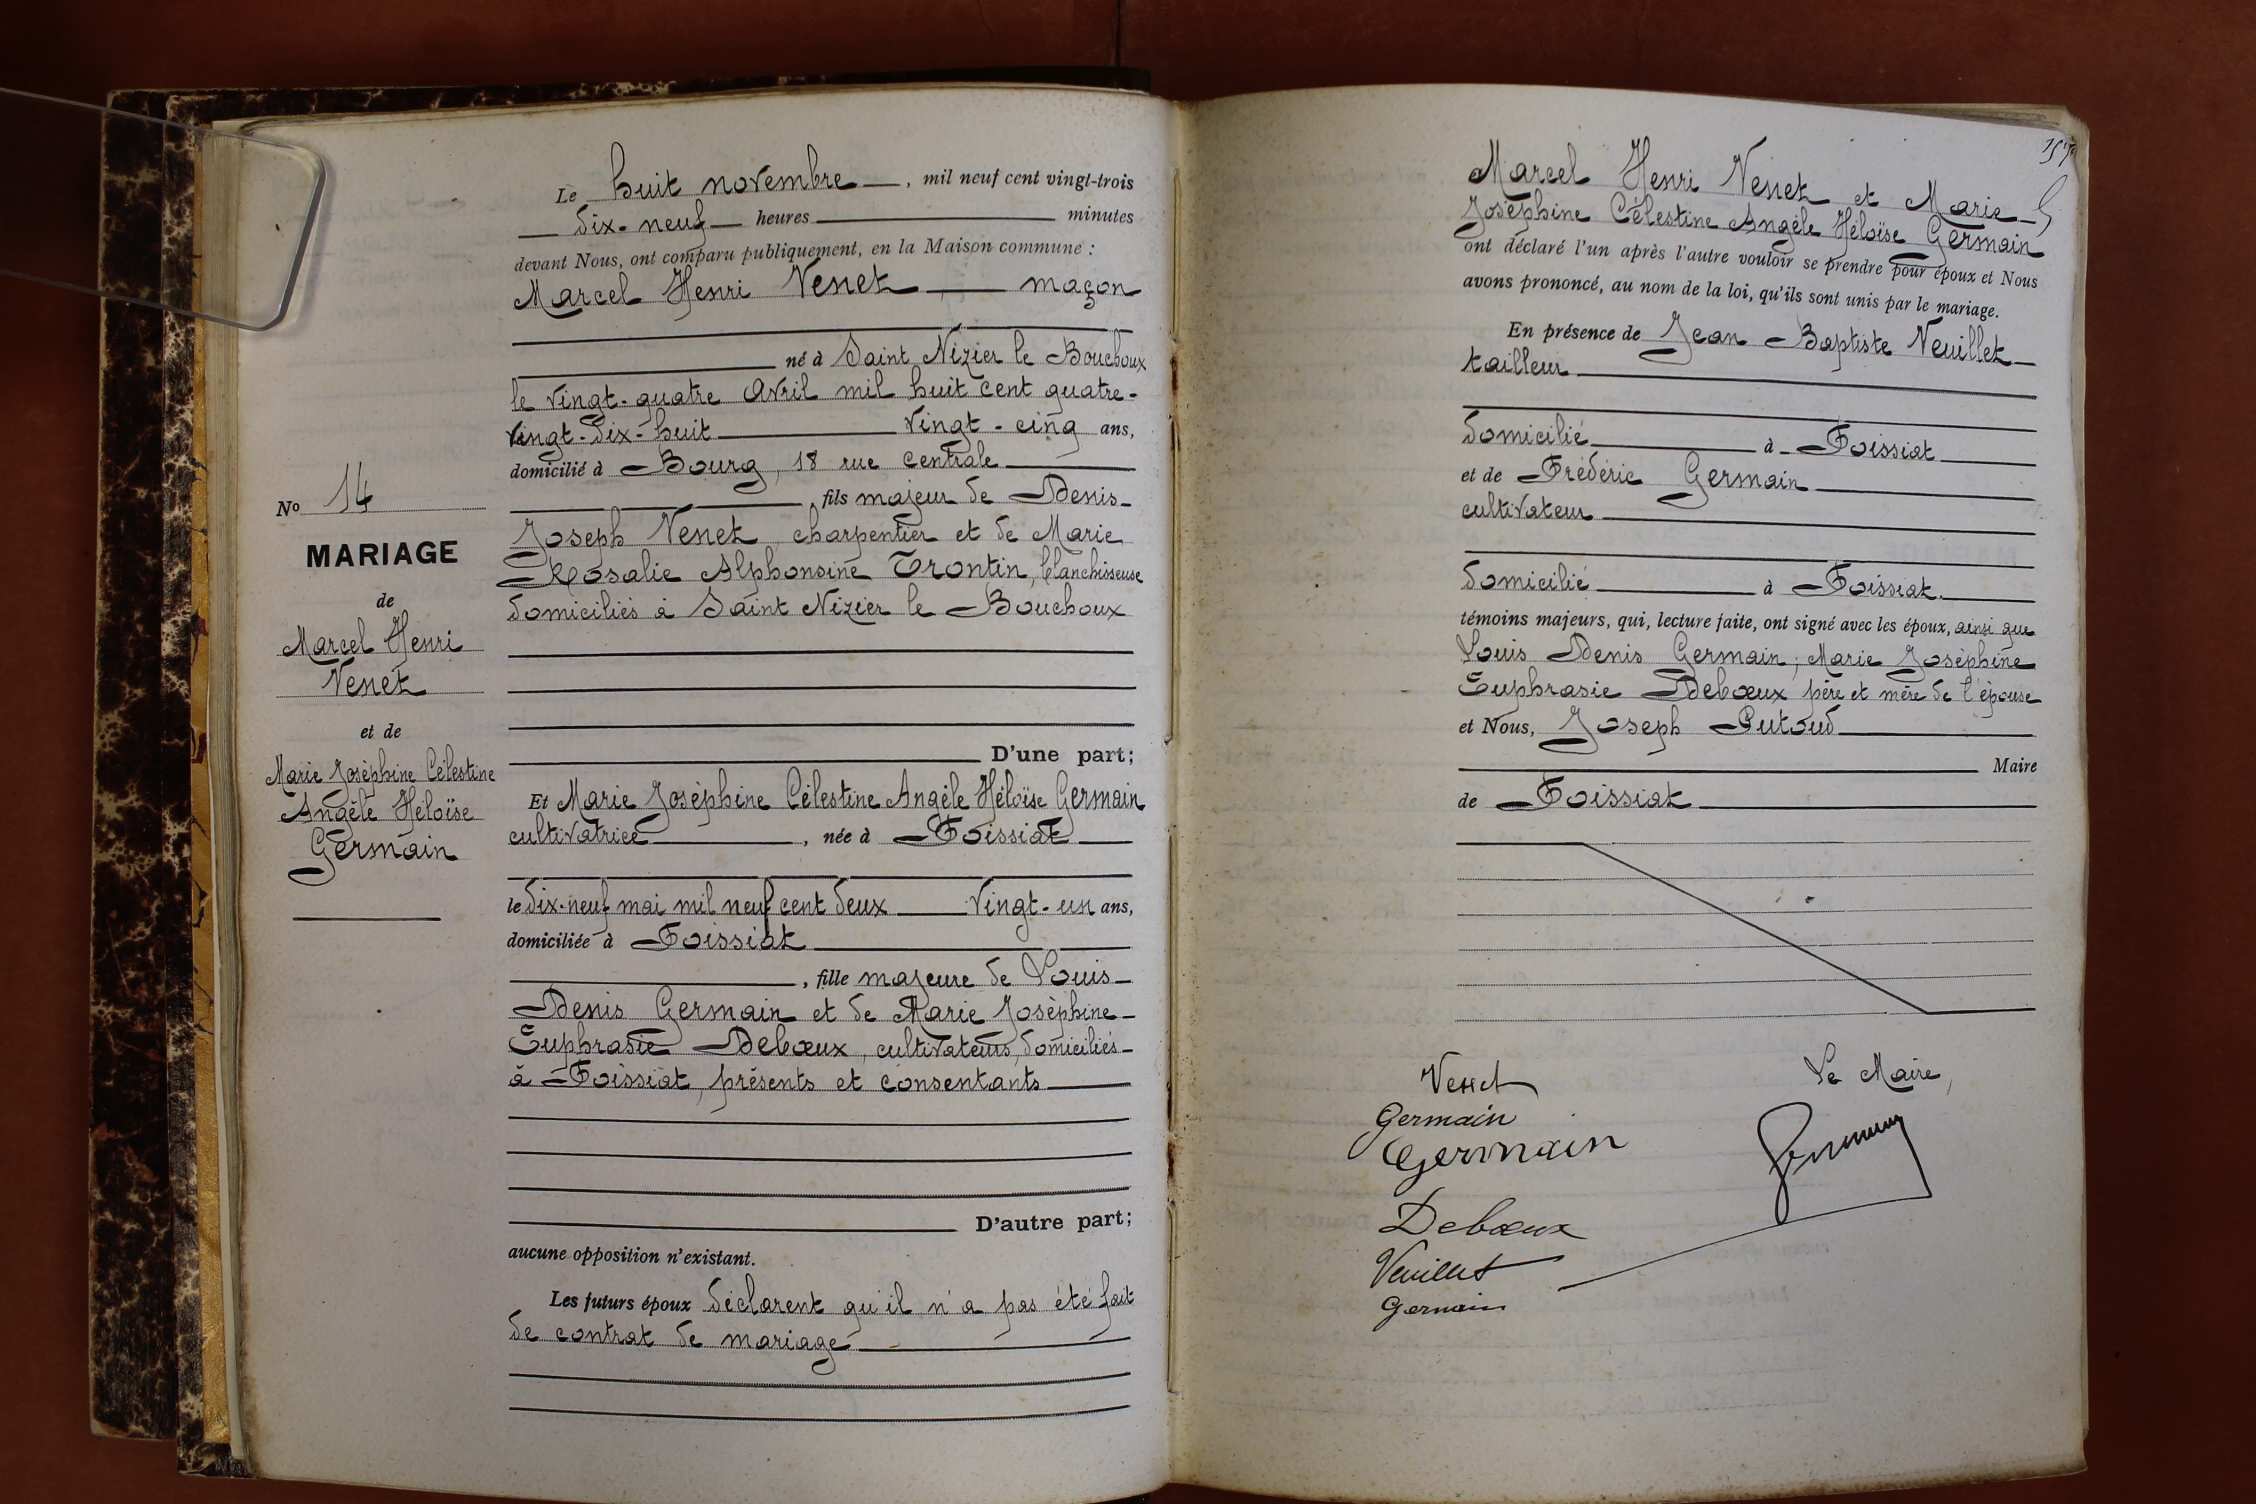 Le huit novembre, mil neuf cent vingt-trois
dix-neuf heures minutes
devant Nous, ont comparu publiquement, en la Maison commune :
Marcel Henri Venet, maçon
né à Saint Nizier le Bouchoux
le vingt-quatre avril mil huit cent quatre-
vingt-dix-huit vingt-cinq ans,
domicilié à Bourg, 18 rue centrale
, fils majeur de Denis
Joseph Venet, charpentier et de Marie
Rosalie Alphonsine Trontin, blanchisseuse
domiciliés à Saint Nizier le Bouchoux
D'une part;
Et Marie Joséphine Célestine Angèle Héloïse Germain
cultivatrice, née à Foissiat
le dix-neuf mai mil neuf cent deux vingt-un ans,
domiciliée à Foissiat
, fille majeure de Louis
Denis Germain et de Marie Joséphine
Euphrasie Debœux, cultivateurs, domiciliés
à Foissiat, présents et consentants
D'autre part;
aucune opposition n'existant.
Les futurs époux déclarent qu'il n'a pas été fait
de contrat de mariage
No 14
MARIAGE
de
Marcel Henri
Venet
et de
Marie Joséphine Célestine
Angèle Héloïse
Germain
Marcel Henri Venet et Marie
Joséphine Célestine Angèle Héloïse Germain
ont déclaré l'un après l'autre vouloir se prendre pour époux et Nous
avons prononcé, au nom de la loi, qu'ils sont unis par le mariage.
En présence de Jean Baptiste Veuillet
tailleur
domicilié à Foissiat
et de Frédéric Germain
cultivateur
domicilié à Foissiat.
témoins majeurs, qui, lecture faite, ont signé avec les époux, ainsi que
Louis Denis Germain, Marie Joséphine
Euphrasie Debœux père et mère de l'épouse
et Nous, Joseph Putoud
Maire
de Foissiat
Venet
Germain
Germain
Debœux
Veuillet
Germain
Le Maire,